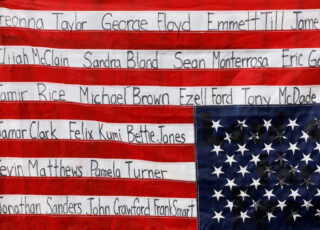 reonna Taylor George Floyd Emmett Till Jame
Elijah McClain Sandra Bland Sean Monterrosa Eric Ga
Tamir Rice Michael Brown Ezell Ford Tony McDade
Jamar Clark Felix Kumi Bettie Jones
Kevin Matthews Pamela Turner
Jonathan Sanders John Crawford Frank Smart